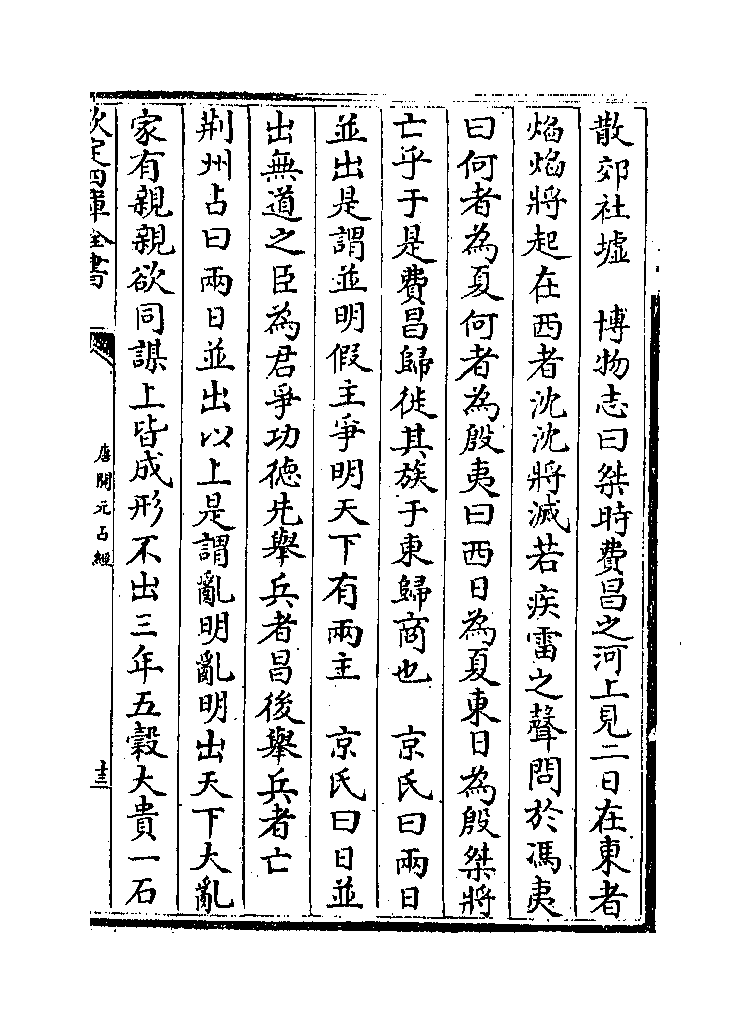 散郊社墟　博物志曰桀時費昌之河上見二日在東者
焰焰將起在西者沈沈將滅若疾雷之聲問於馮夷
曰何者為夏何者為殷夷曰西日為夏東日為殷桀將
亡乎于是費昌歸徙其族于東歸商也　京氏曰兩日
並出是謂並明假主爭明天下有兩主　京氏曰日並
出無道之臣為君爭功徳先舉兵者昌後舉兵者亡
荆州占曰兩日並出以上是謂亂明亂明出天下大亂
家有親親欲同謀上皆成形不出三年五穀大貴一石
欽定四庫全書
唐開元占經
十三